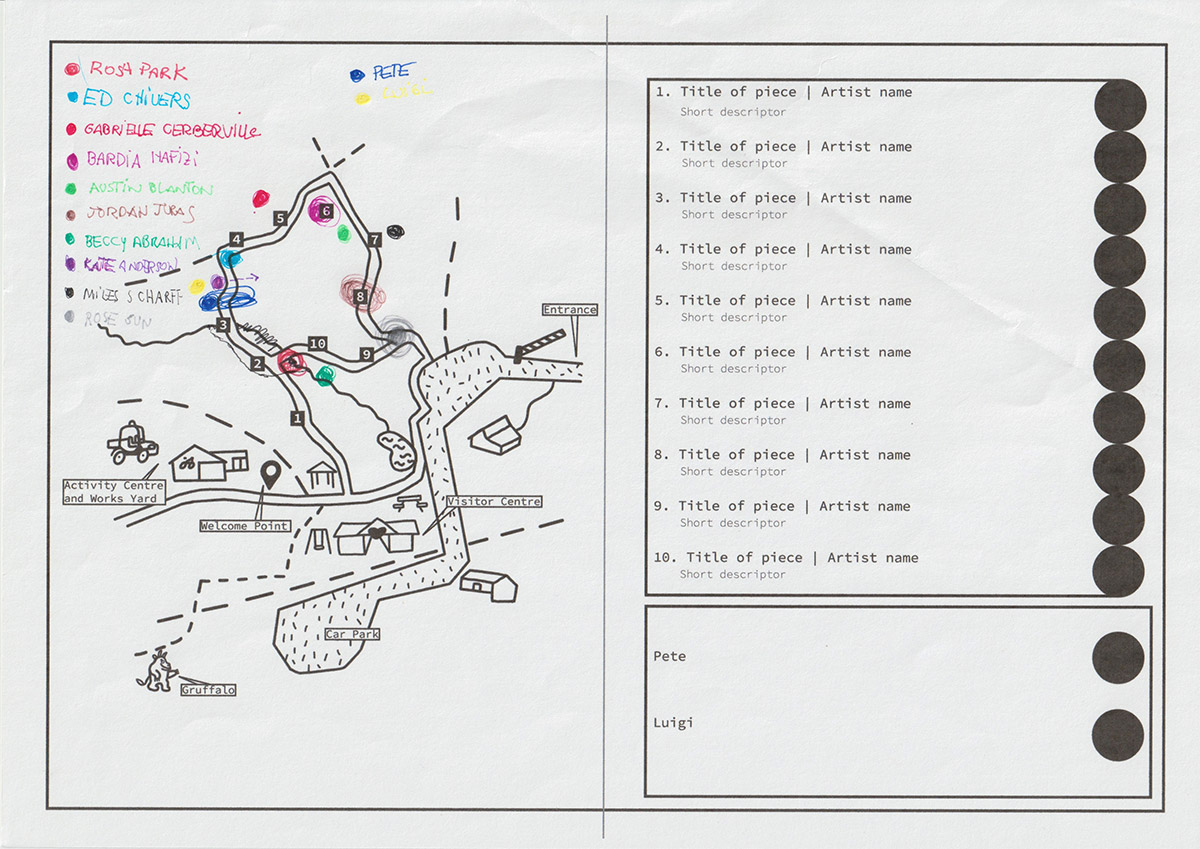 ROSA PARK
ED CHIVERS
GABRIELLE CERBERVILLE
BARDIA HAFIZI
AUSTIN BLANTON
JORDAN JUBAS
BECCY ABRAHAM
KATE ANDERSON
MILES SCHARFF
ROSE SUN
PETE
6
5
4
7
8
3
10
9
2
1
Entrance
Activity Centre
and Works Yard
Welcome Point
Visitor Centre
Car Park
Gruffalo
1. Title of piece | Artist name
Short descriptor
2. Title of piece | Artist name
Short descriptor
3. Title of piece | Artist name
Short descriptor
4. Title of piece | Artist name
Short descriptor
5. Title of piece | Artist name
Short descriptor
6. Title of piece | Artist name
Short descriptor
7. Title of piece | Artist name
Short descriptor
8. Title of piece | Artist name
Short descriptor
9. Title of piece | Artist name
Short descriptor
10. Title of piece | Artist name
Short descriptor
Pete
Luigi